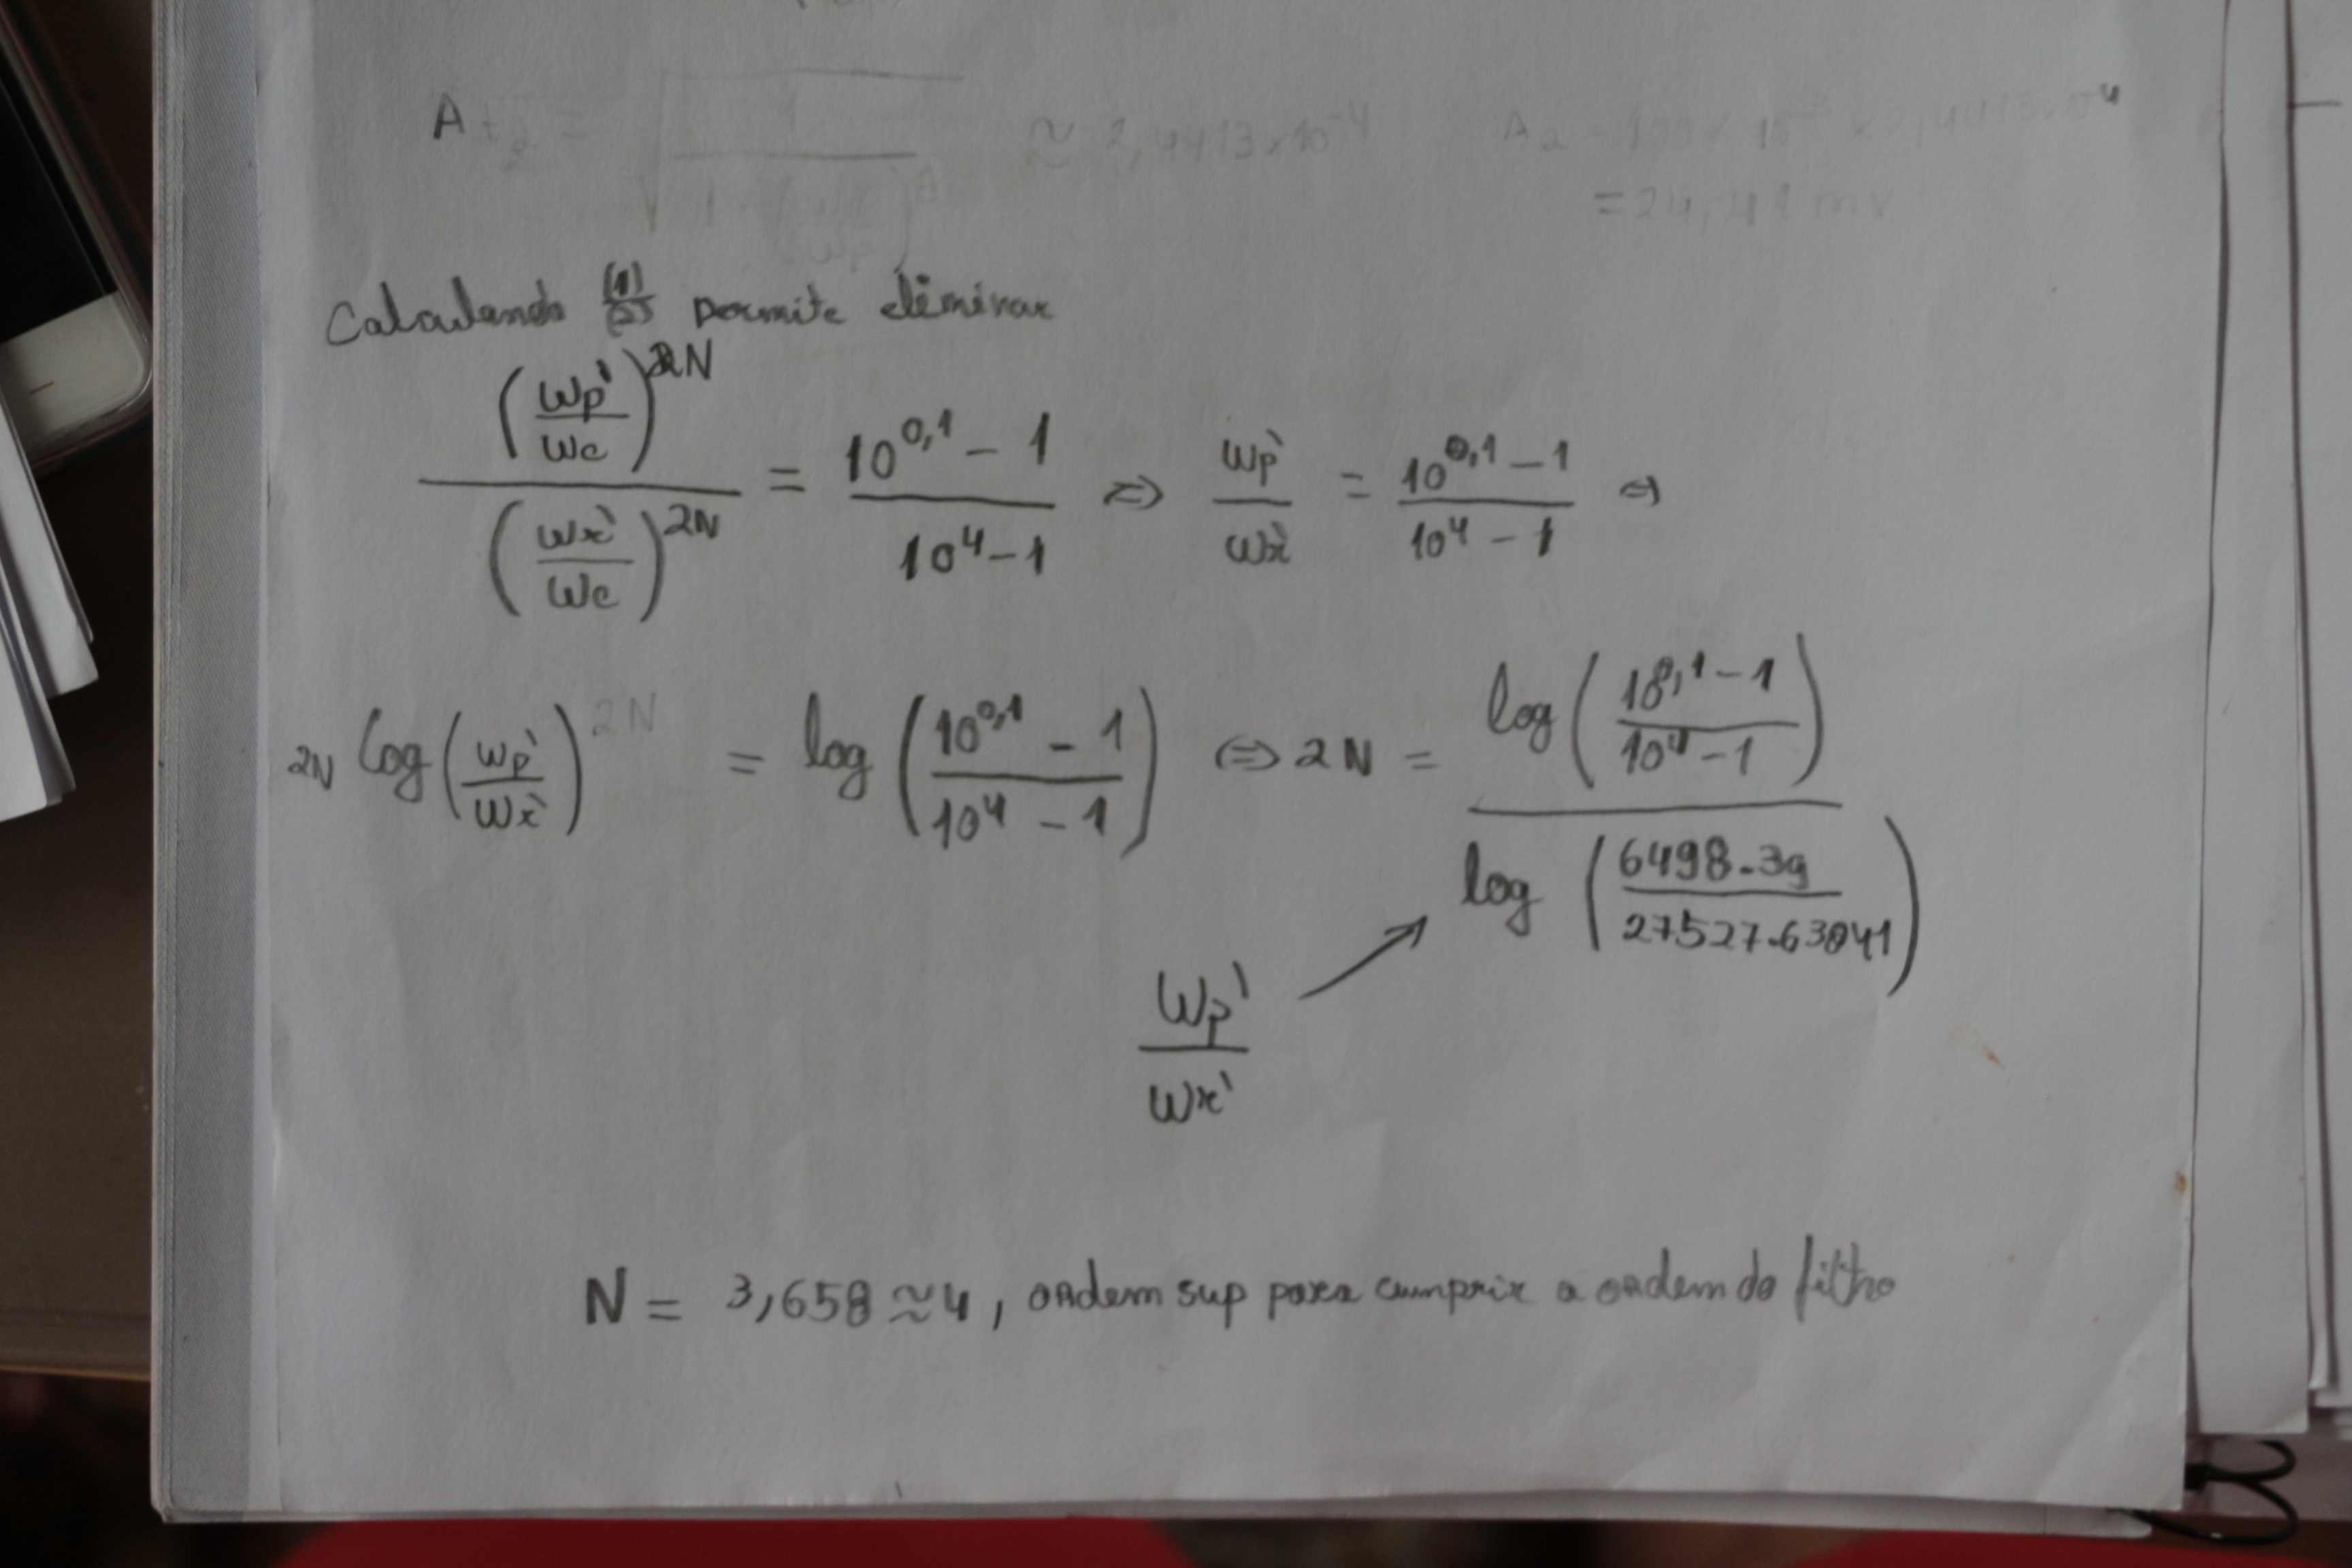 ≈ 2,4413×10^-4
= 24,41 mV
Calculando (1)/(2) permite eliminar
(ωp'/ωc)^2N / (ωx'/ωc)^2N = (10^0,1 − 1)/(10^4 − 1) ⇔ ωp'/ωx' = (10^0,1 − 1)/(10^4 − 1) ⇔
2N log(ωp'/ωx')^2N = log((10^0,1 − 1)/(10^4 − 1)) ⇔ 2N = log((10^0,1 − 1)/(10^4 − 1)) / log(6498.39/27527.63041)
ωp'/ωx' →
N = 3,658 ≈ 4, ordem sup para cumprir a ordem do filtro